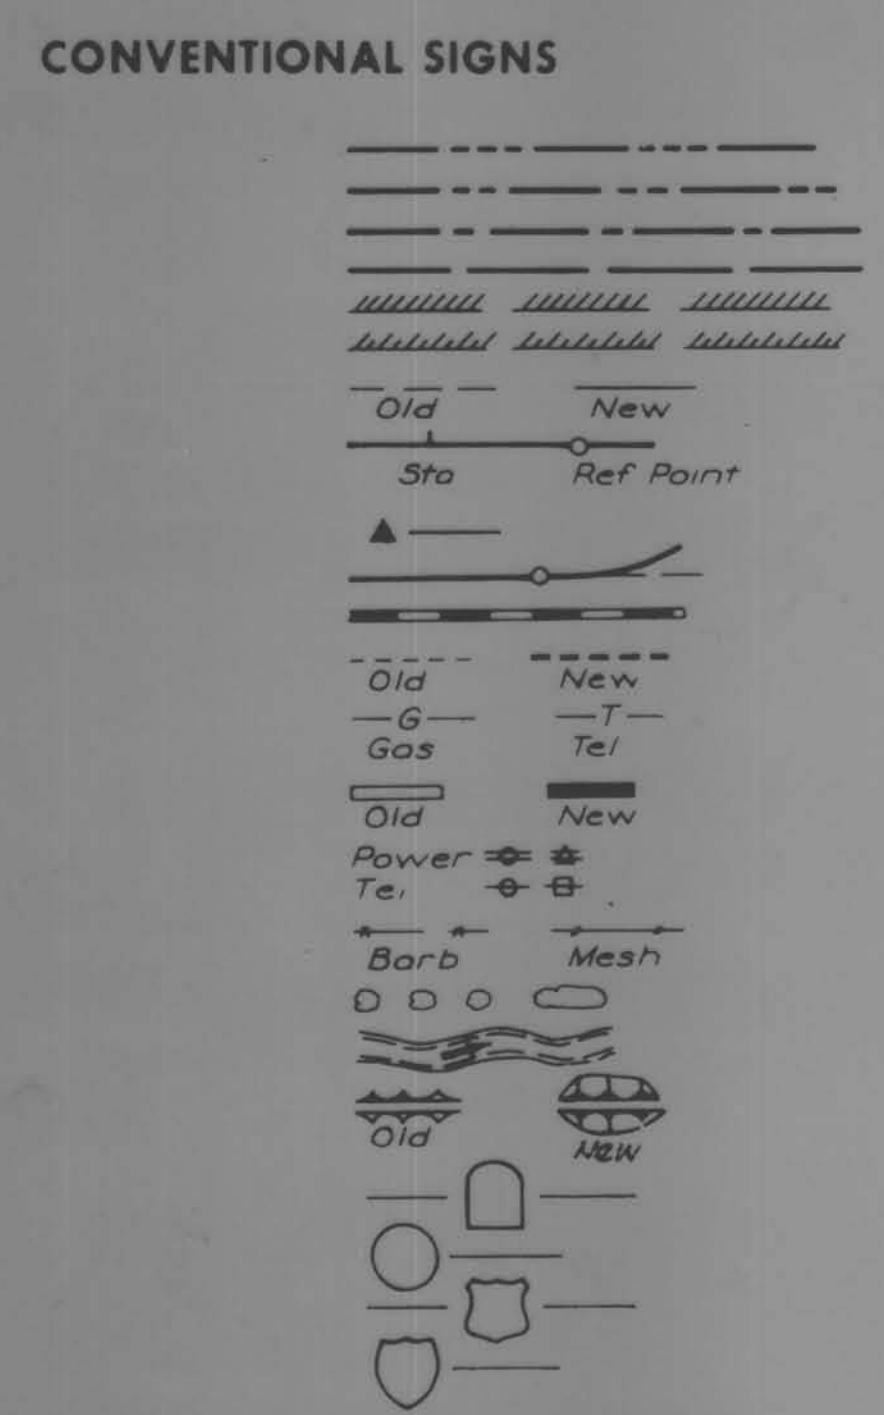 CONVENTIONAL SIGNS
Old New
Sta Ref Point
Old New
G T
Gas Tel
Old New
Power
Tel
Barb Mesh
Old New